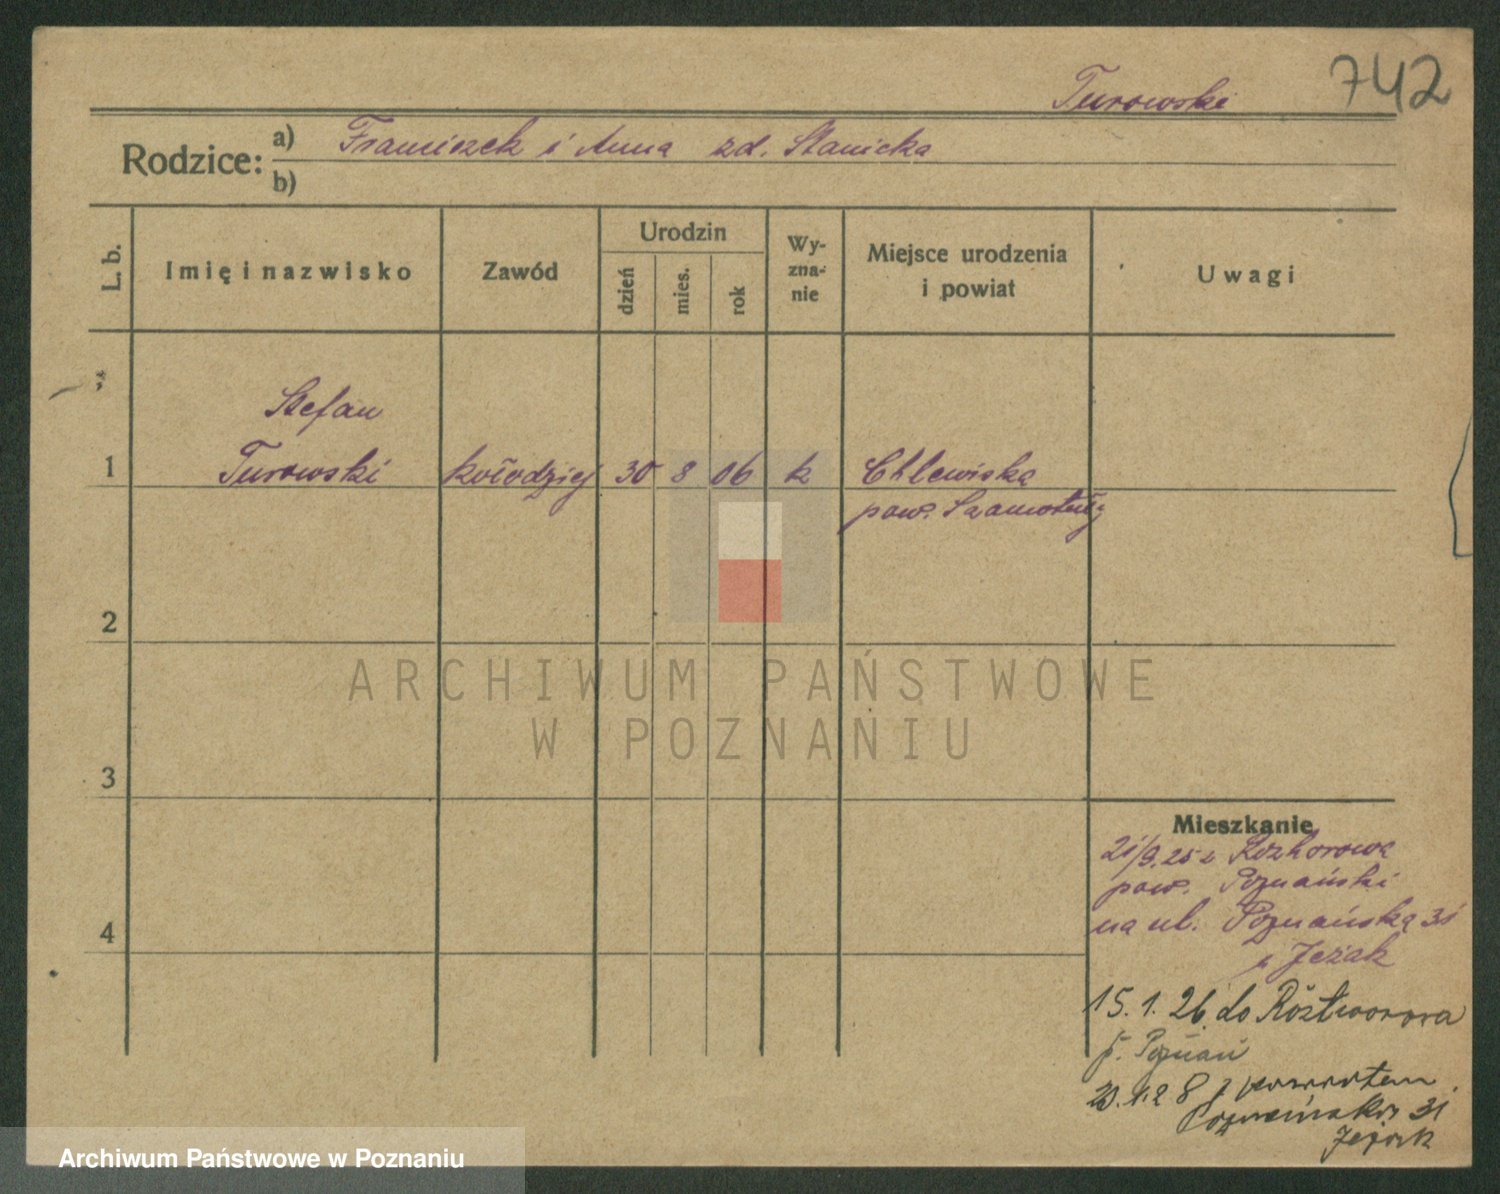 742
Turowski
Rodzice:
a) Franciszek i Anna zd. Stanicka
b)
L. b.
Imię i nazwisko
Zawód
Urodzin
dzień
mies.
rok
Wy-
zna-
nie
Miejsce urodzenia
i powiat
Uwagi
Stefan
1 Turowski kołodziej 30 8 06 k Chlewiska
pow. Szamotuły
2
3
4
Mieszkanie
21/9.25 z
pow. Poznański
na ul. Poznańską 31
Jeżak
15.1.26 do Roztworowa
p. Poznań
20.1.28 z powrotem
Poznańska 31
Jeżak
ARCHIWUM PAŃSTWOWE
W POZNANIU
Archiwum Państwowe w Poznaniu